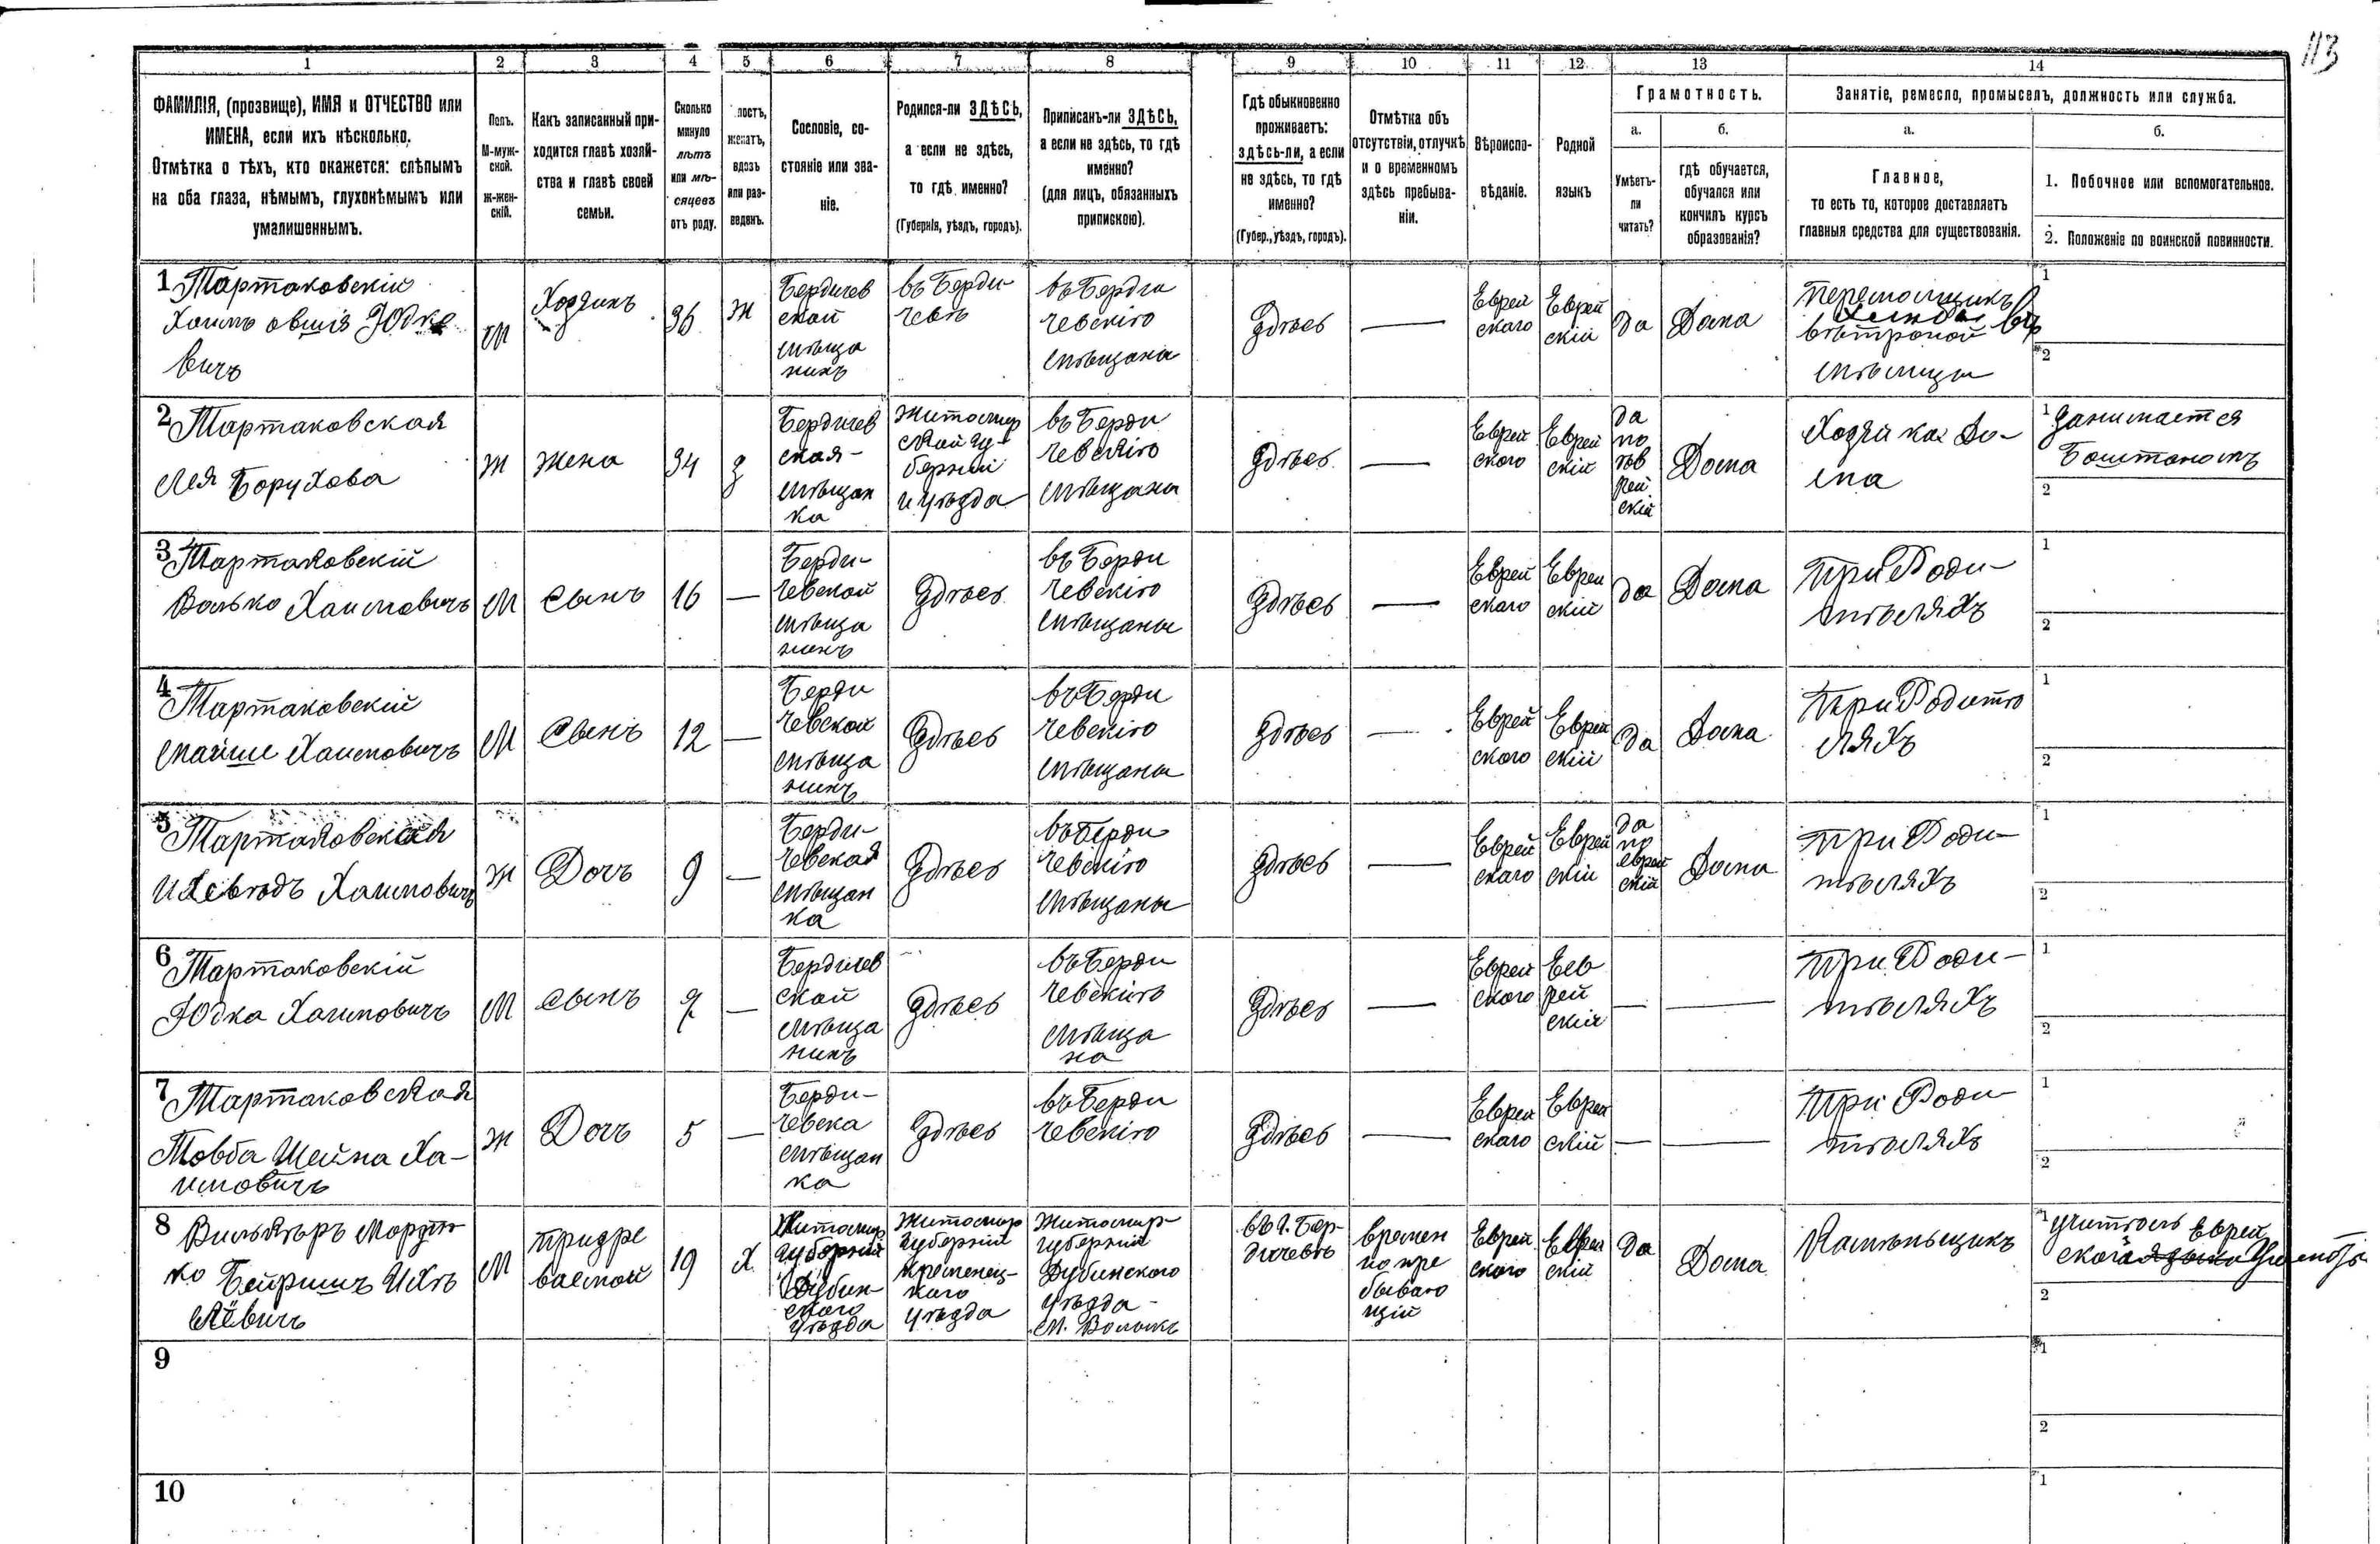 113
1 2 3 4 5 6 7 8 9 10 11 12 13 14
ФАМИЛІЯ, (прозвище), ИМЯ и ОТЧЕСТВО или
ИМЕНА, если ихъ нѣсколько.
Отмѣтка о тѣхъ, кто окажется: слѣпымъ
на оба глаза, нѣмымъ, глухонѣмымъ или
умалишеннымъ.
Полъ.
М-муж-
ской.
ж-жен-
скій.
Какъ записанный при-
ходится главѣ хозяй-
ства и главѣ своей
семьи.
Сколько
минуло
лѣтъ
или мѣ-
сяцевъ
отъ роду.
лостъ,
женатъ,
вдовъ
или раз-
веденъ.
Сословіе, со-
стояніе или зва-
ніе.
Родился-ли ЗДѢСЬ,
а если не здѣсь,
то гдѣ именно?
(Губернія, уѣздъ, городъ).
Приписанъ-ли ЗДѢСЬ,
а если не здѣсь, то гдѣ
именно?
(для лицъ, обязанныхъ
припискою).
Гдѣ обыкновенно
проживаетъ:
здѣсь-ли, а если
не здѣсь, то гдѣ
именно?
(Губер., уѣздъ, городъ).
Отмѣтка объ
отсутствіи, отлучкѣ
и о временномъ
здѣсь пребыва-
ніи.
Вѣроиспо-
вѣданіе.
Родной
языкъ
Грамотность.
а.
Умѣетъ-
ли
читать?
б.
гдѣ обучается,
обучался или
кончилъ курсъ
образованія?
Занятіе, ремесло, промыселъ, должность или служба.
а.
Главное,
то есть то, которое доставляетъ
главныя средства для существованія.
б.
1. Побочное или вспомогательное.
2. Положеніе по воинской повинности.
1 Тартаковскій
Хаимъ овшія Юдко
вичъ
М
Хозяинъ
36
ж
Бердичев
ской
мѣща
нинъ
въ Берди
чевѣ
въ Берди
чевскіго
мѣщана
Здѣсь
—
Еврей
скаго
Еврей
скій
да
Дома
вѣтрной
мѣлицы
1
2
2 Тартаковская
Лея Борухова
ж
жена
34
З
Бердичев
ская-
мѣщан
ка
Житомир
ской гу-
берніи
и уѣзда
въ Берди
чевскіго
мѣщана
Здѣсь
—
Еврей
скаго
Еврей
скій
да
по
ѣв
рей
скій
Дома
Хозяйка до-
ма
1 Занимается
Боштаномъ
2
3 Тартаковскій
Волько Хаимовичъ
М
сынъ
16
—
Берди-
чевской
мѣща
нинъ
Здѣсь
въ Берди
чевскіго
мѣщаны
Здѣсь
—
Еврей
скаго
Еврей
скій
да
Дома
При Роди-
тѣляхъ
1
2
4 Тартаковскій
Мойше Хаимовичъ
М
сынъ
12
—
Берди
чевской
мѣща
нинъ
Здѣсь
въ Берди
чевскіго
мѣщаны
Здѣсь
—
Еврей
скаго
Еврей
скій
да
Дома
При Родитѣ
ляхъ
1
2
5 Тартаковская
Хаимовичъ
ж
Дочъ
9
—
Берди-
чевская
мѣщан
ка
Здѣсь
въ Берди
чевскіго
мѣщаны
Здѣсь
—
Еврей
скаго
Еврей
скій
да
по
еврей
скій
Дома
При Роди-
тѣляхъ
1
2
6 Тартаковскій
Юдка Хаимовичъ
М
сынъ
7
—
Бердичев
ской
мѣща
нинъ
Здѣсь
въ Берди
чевскіго
мѣща
на
Здѣсь
—
Еврей
скаго
Еев
рей
скій
—
—
При Роди-
тѣляхъ
1
2
7 Тартаковская
Товба Шейна Ха-
имовичъ
ж
Дочъ
5
—
Берди-
чевска
мѣщан
ка
Здѣсь
въ Берди
чевскіго
Здѣсь
—
Еврей
скаго
Еврей
скій
—
—
При Роди
тѣляхъ
1
2
8 Мордт
ко Бейришъ Ихъ
лёвичъ
М
19
Х
Житомир
губерній
Дубин-
ского
уѣзда
Житомир
губерніи
Кременец-
каго
уѣзда
Житомир-
губерніи
Дубинского
уѣзда-
въ г. Бер-
дичевѣ
времен
но пре
бываю
щій
Еврей
скаго
Еврей
скій
да
Дома
1 учитѣль Еврей
ской
2
9
1
2
10
1